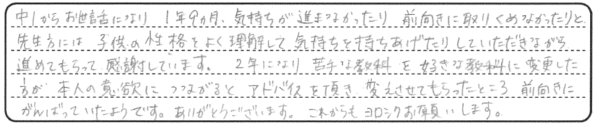 中1からお世話になり 1年9カ月、気持ちが進まなかったり 前向きに取りくめなかったりと
先生方には 子供の性格をよく理解して 気持ちを持ちあげたりしていただきながら
進めてもらって 感謝しています。 2年になり 苦手な教科を 好きな教科に変更した
方が 本人の意欲に つながると アドバイスを頂き 変えさせてもらったところ 前向きに
がんばっていたようです。ありがとうございます。これからもヨロシクお願いします。